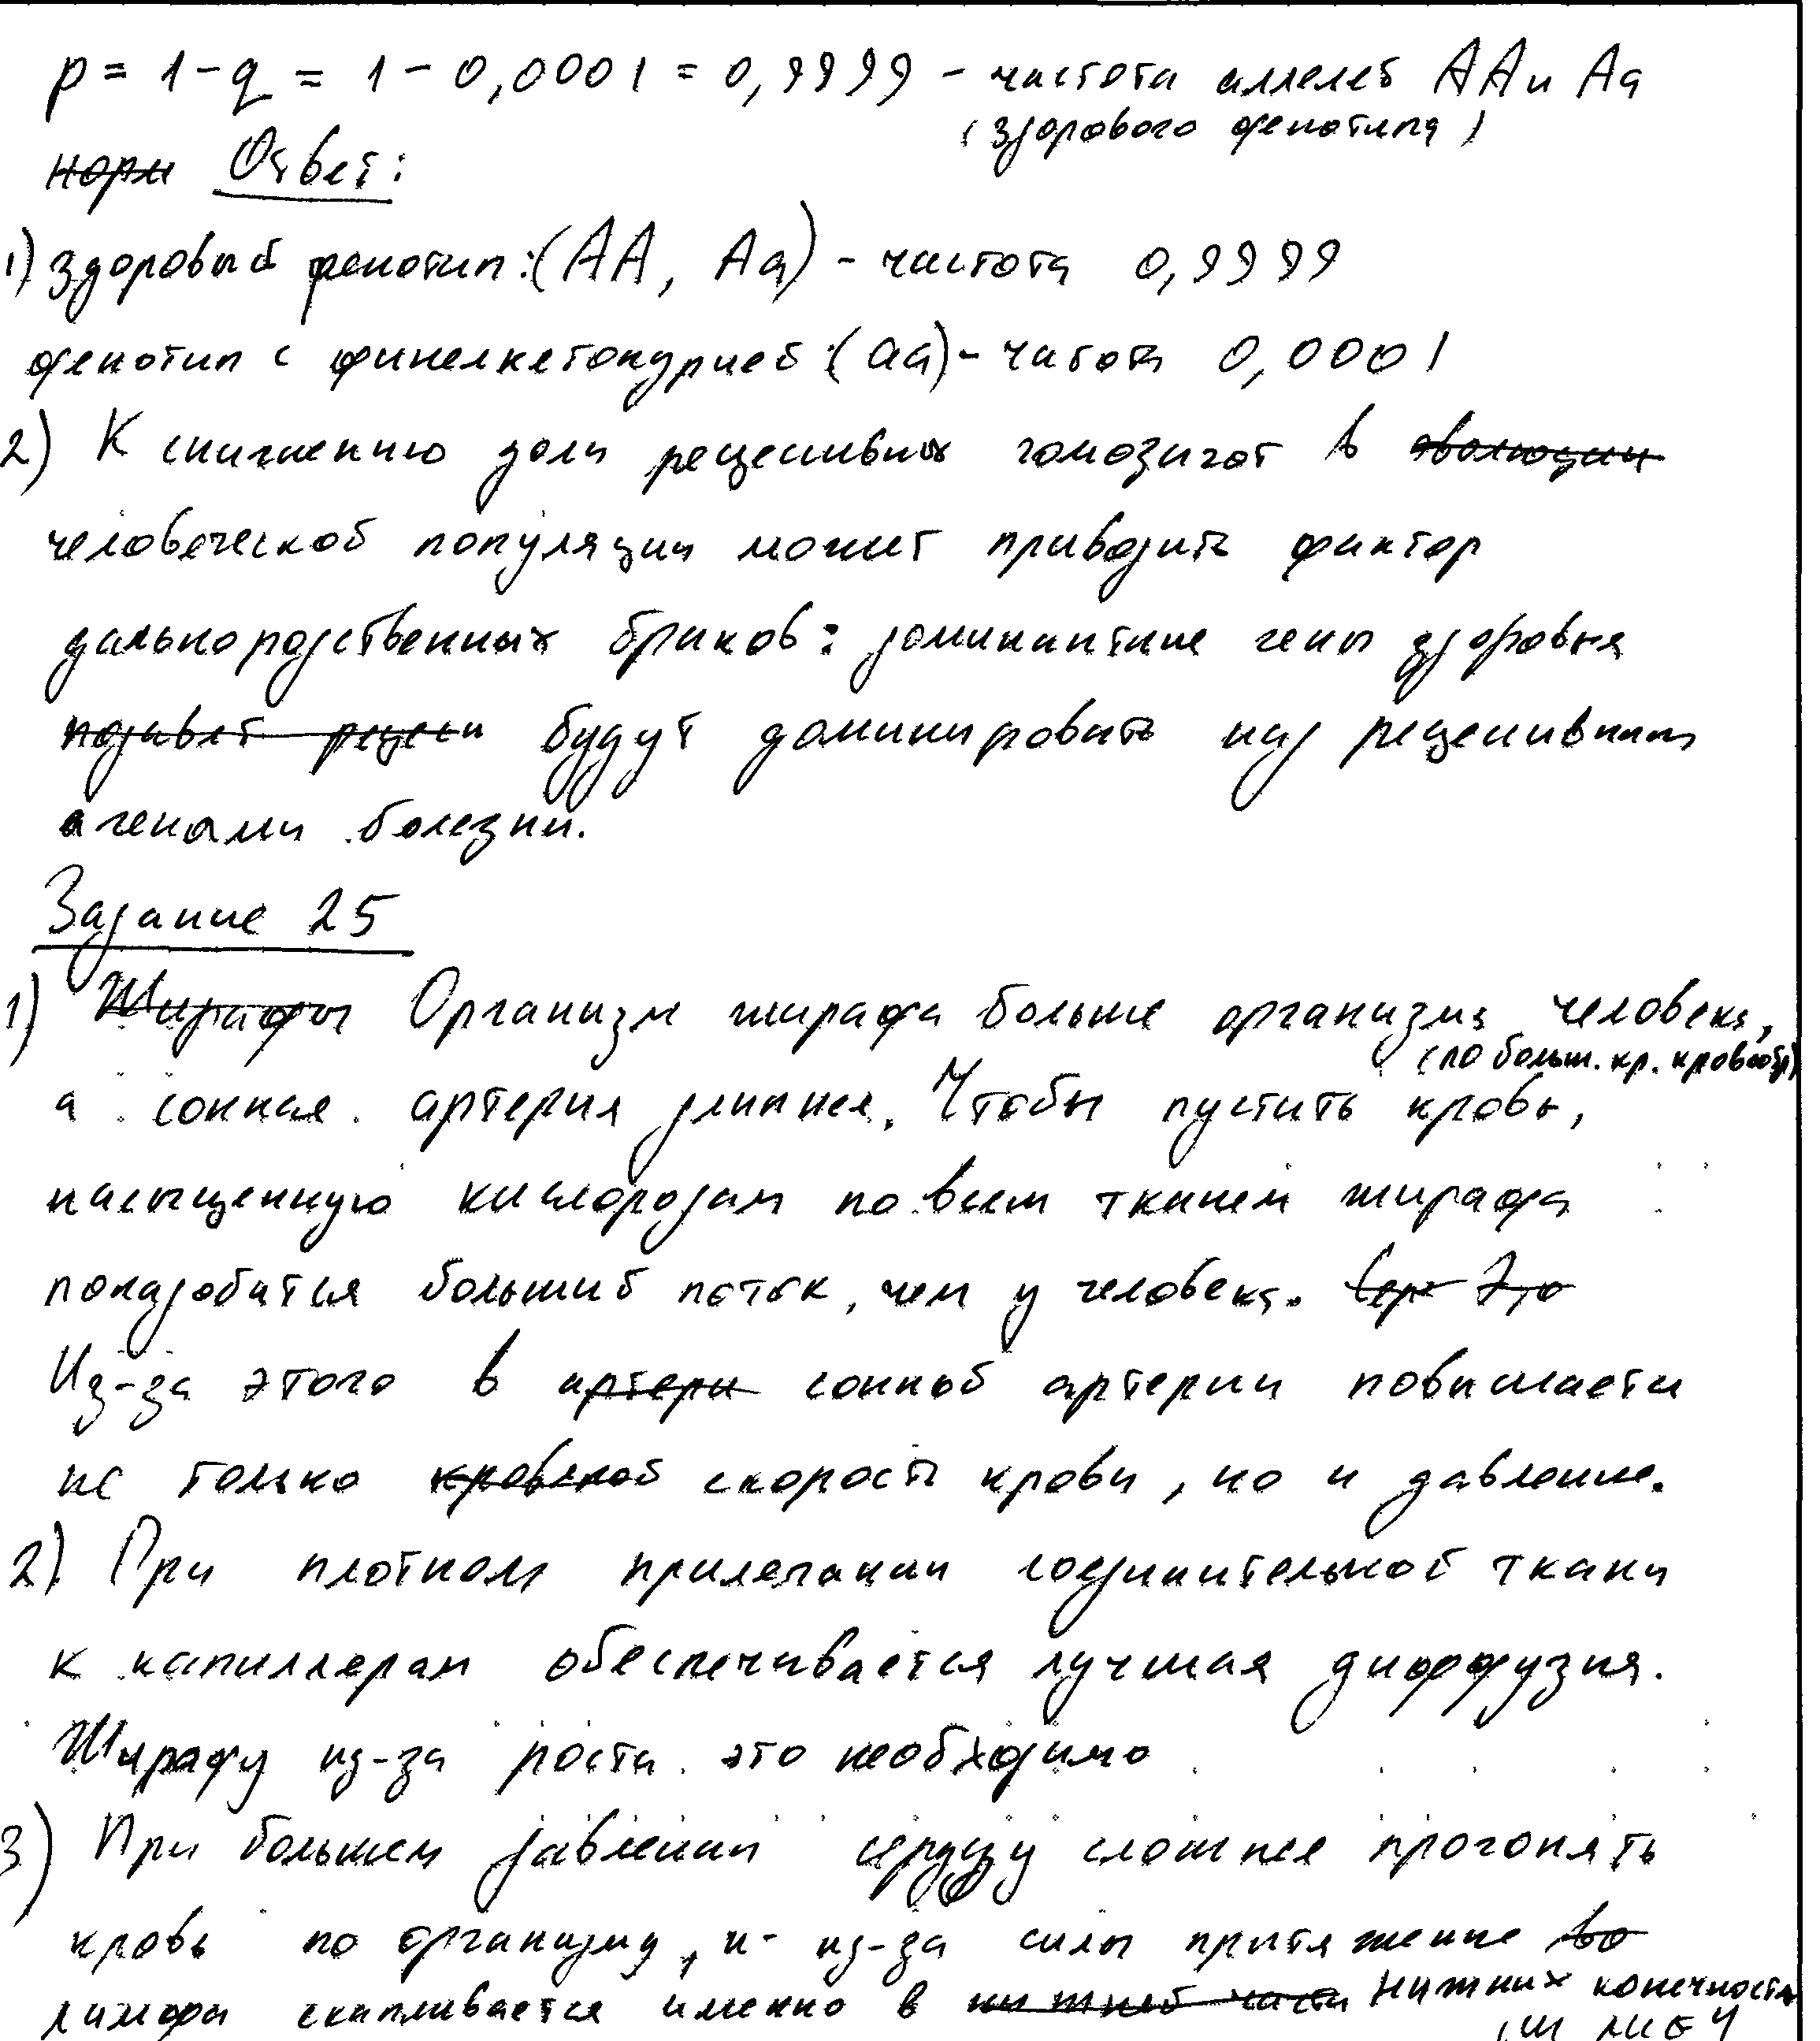 p = 1 - q = 1 - 0,0001 = 0,9999 - частота аллелей АА и Аа
(здорового фенотипа)
норм Ответ:
1) здоровый фенотип: (АА, Аа) - частота 0,9999
фенотип с финелкетонурией: (аа) - частота 0,0001
2) К снижению доли рецессивных гомозигот в эволюции
человеческой популяции может приводить фактор
дальнородственных браков: доминантные гены здоровья
подавят рецесси будут доминировать над рецессивными
генами болезни.
Задание 25
1) Жирафы Организм жирафа больше организма человека,
(по больш. кр. кровообр)
а сонная артерия длиннее. Чтобы пустить кровь,
насыщенную кислородом по всем тканям жирафа
понадобится больший поток, чем у человека. Сер Это
Из-за этого в артери сонной артерии повышается
не только кровяной скорость крови, но и давление.
2) При плотном прилегании соединительной ткани
к капиллярам обеспечивается лучшая диффузия.
Жирафу из-за роста это необходимо
3) При большем давлении сердцу сложнее прогонять
кровь по организму, и из-за силы притяжение во
лимфа скапливается именно в нижней части нижних конечностя